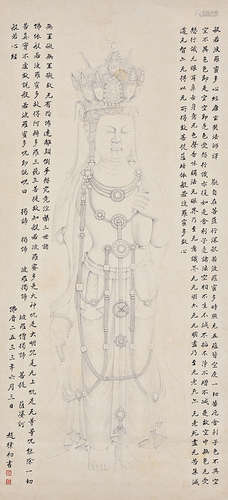 般若波羅蜜多心經唐玄奘法師譯 觀自在菩薩行深般若波羅蜜多時照見五蘊皆空度一切苦厄舍利子色不異空
空不異色色即是空空即是色受想行識亦復如是舍利子是諸法空相不生不滅不垢不淨不增不減是故空中无色无受
想行識无眼耳鼻舌身意无色聲香味觸法无眼界乃至无意識界无无明亦无无明盡乃至无老死亦无老死盡无苦集滅
道无智亦无得以无所得故菩提薩埵依般若波羅蜜多故心
無罣礙無罣礙故无有恐怖遠離顛倒夢想究竟涅槃三世諸
佛依般若波羅蜜多故得阿耨多羅三藐三菩提故知般若波羅蜜多是大神咒是大明咒是无上咒是无等等咒能除一切
苦真實不虛故說般若波羅蜜多咒即說咒曰 揭諦 揭諦 波羅揭諦 波羅僧揭諦 菩提 薩婆訶
般若心經
佛曆二五三三年 月三日 趙樸初書